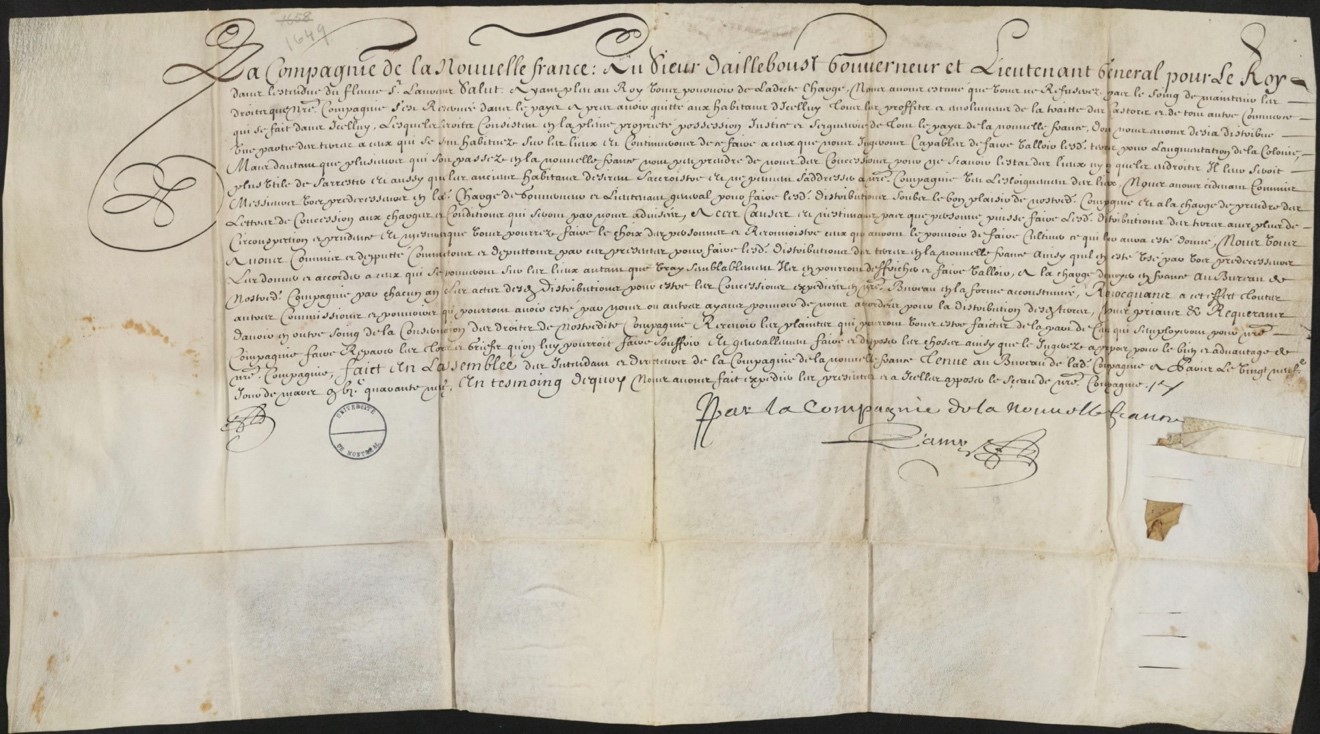 1658
1649
La Compagnie de la Nouvelle france: Au Sieur Dailleboust Gouverneur et Lieutenant General pour Le Roy
dans lestendue du fleuve St. Laurens Salut. Ayant pleu au Roy vous pourvoir de Ladicte Charge, Nous avons estimé que vous ne Refuserez pas le soing de maintenir les
droits que nre. Compagnie s'est Reservée dans le pays et pour avoir quitté aux habitans d'Icelluy tous les proffits et esmolumens de la traitte des Castors et de tout autre Commerce
qui se fait dans Icelluy, Lesquels droits Consistent en la pleine propriété possession Justice et Seigneurie de tout le pays de la nouvelle france, dont nous avons desia distribué
une partie des terres a ceux qui se sont habituez sur les lieux et Continuons de ce faire a ceux que nous Jugeons Capables de faire valloir lesd. terres pour L'augmentation de la Colonie,
Mais dautant que plusieurs qui sont passez en la nouvelle france nont pu prendre de nous des Concessions pour ne scavoir lestat des lieux ny quel endroit Il leur seroit
plus utile de s'arrester et aussy que les anciens habitans desirent s'accroistre et ne peuvent s'addresser a nre. Compagnie veu l'esloignement des lieux, Nous avons cidevant Commis
Messieurs vos predecesseurs en la Charge de Gouverneur et Lieutenant general pour faire lesd. distributions soubs le bon plaisir de nostred. Compagnie et a la charge de prendre des
Lettres de Concession aux charges et Conditions qui seront par nous advisées, A ces Causes et n'estimant pas que personne puisse faire Lesd. distributions des terres avec plus de
Circonspection et prudence et mesme que vous pourrez faire le choix des personnes et Reconnoistre ceux qui auront le pouvoir de faire Cultiver ce qui leur aura esté donné, Nous vous
avons Commis et deputté Commettons et deputtons par ces presentes pour faire lesd. distributions des terres en la nouvelle france Ainsy quil en a esté usé par vos predecesseurs
Les donner et accorder a ceux qui se trouveront sur les lieux autant que vray semblablement Ilz en pourront deffricher et faire valloir, A la charge denvoyer en france Au Bureau de
Nostred. Compagnie par chacun an les actes desd. Distributions pour estre les Concessions expediées en nre. Bureau en la forme accoustumée, Revocquant a cet effect toutes
autres Commissions et pouvoirs qui pourroient avoir esté par nous ou autres ayans pouvoir de nous accordez pour la distribution desd. terres, Vous priant et Requerant
d'avoir en outre soing de la Conservation des droits de Nostredite Compagnie Recevoir les plaintes qui pourront vous estre faictes de la part de ceux qui semployeront pour nre.
Compagnie faire Reparer les torts et griefs qu'on luy pourroit faire souffrir et generallement faire et disposer les choses ainsy que le Jugerez a propos pour le bien et advantage de
nre. Compagnie, faict en Lassemblée des Intendant et Directeurs de la Compagnie de la nouvelle france Tenue au Bureau de lad. Compagnie A Paris Le vingt neufe.
Jour de mars quarante neuf, En tesmoing dequoy Nous avons fait expedier les presentes et a Icelles apposer le sceau de nre. Compagnie
Par la Compagnie de la nouvelle france
Lamy
UNIVERSITÉ
DE MONTRÉAL